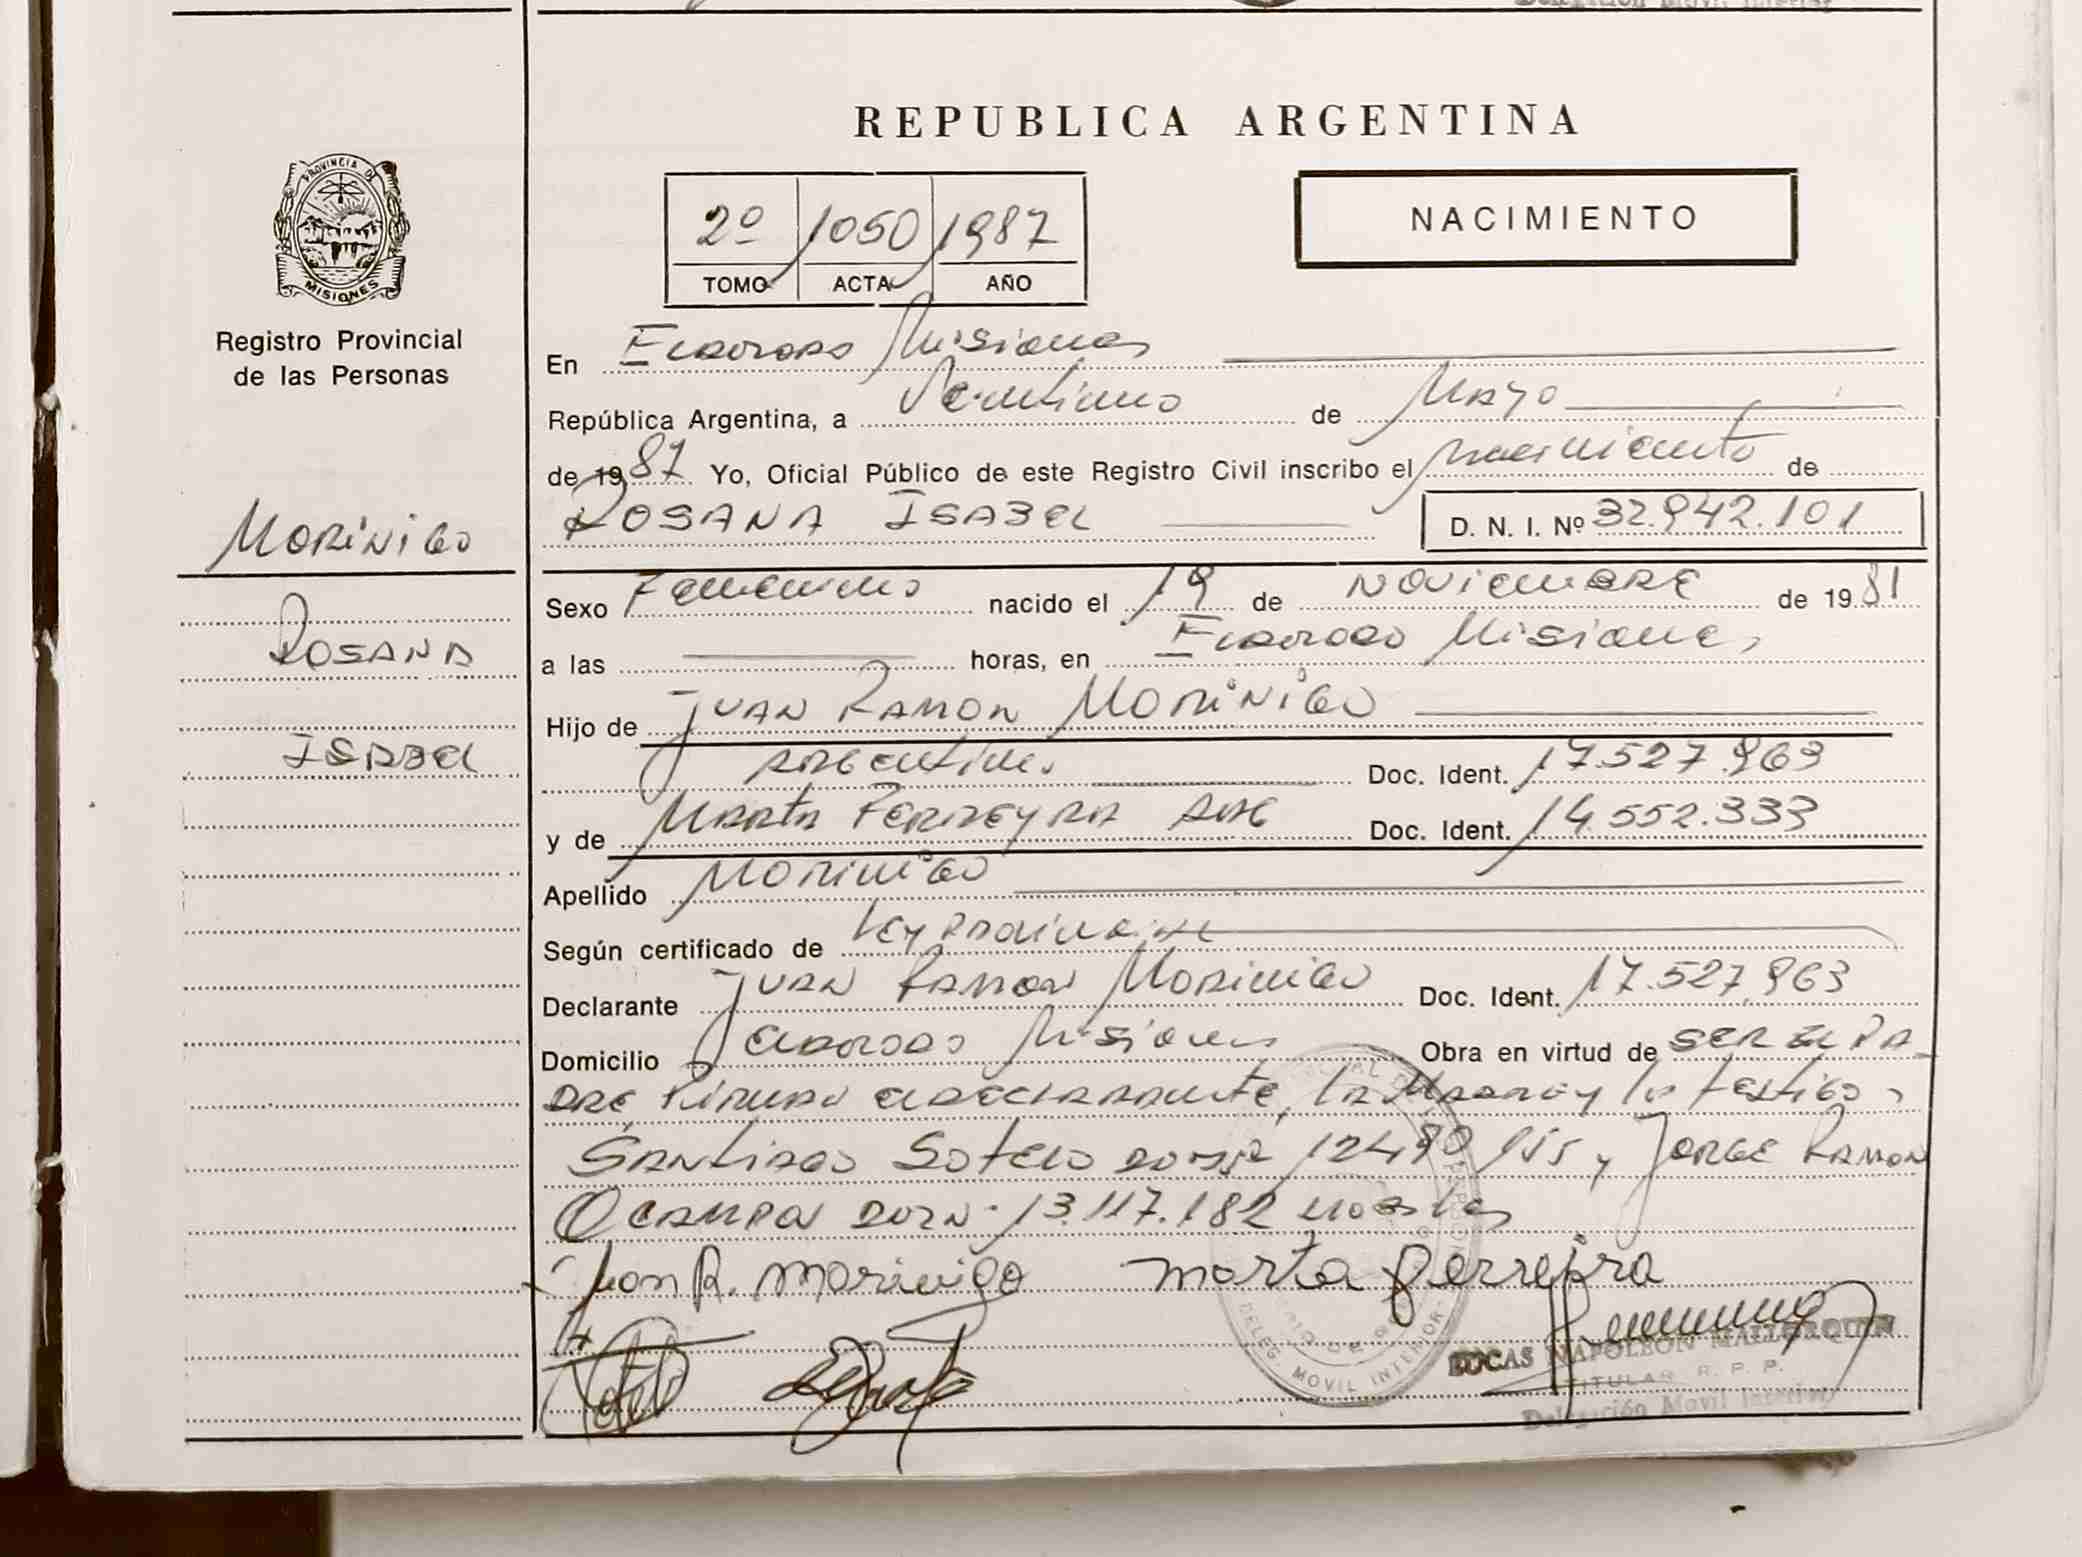 REPUBLICA ARGENTINA
PROVINCIA DE
MISIONES
Registro Provincial
de las Personas
2º 1050 1987
TOMO ACTA AÑO
NACIMIENTO
En Eldorado Misiones
República Argentina, a Veintiuno de Mayo
de 1987 Yo, Oficial Público de este Registro Civil inscribo el nacimiento de
ROSANA ISABEL D. N. I. Nº 32.942.101
MORINIGO
ROSANA
ISABEL
Sexo Femenino nacido el 19 de NOVIEMBRE de 1981
a las horas, en Eldorado Misiones
Hijo de JUAN RAMON MORINIGO
ARGENTINO Doc. Ident. 17.527.963
y de MARTA FERREYRA ARG Doc. Ident. 14.552.333
Apellido MORINIGO
Según certificado de Ley
Declarante JUAN RAMON MORINIGO Doc. Ident. 17.527.963
Domicilio Eldorado Misiones Obra en virtud de SER EL PA
DRE Firman el declarante, la Madre y los testigos
SANTIAGO SOTELO 12490 y JORGE RAMON
OCAMPO 13.117.182
Juan R. Morinigo Marta Ferreyra
DELEG. MOVIL INTERIOR
LUCAS NAPOLEON MALLORQUIN
TITULAR R. P. P.
Delegación Movil Interior